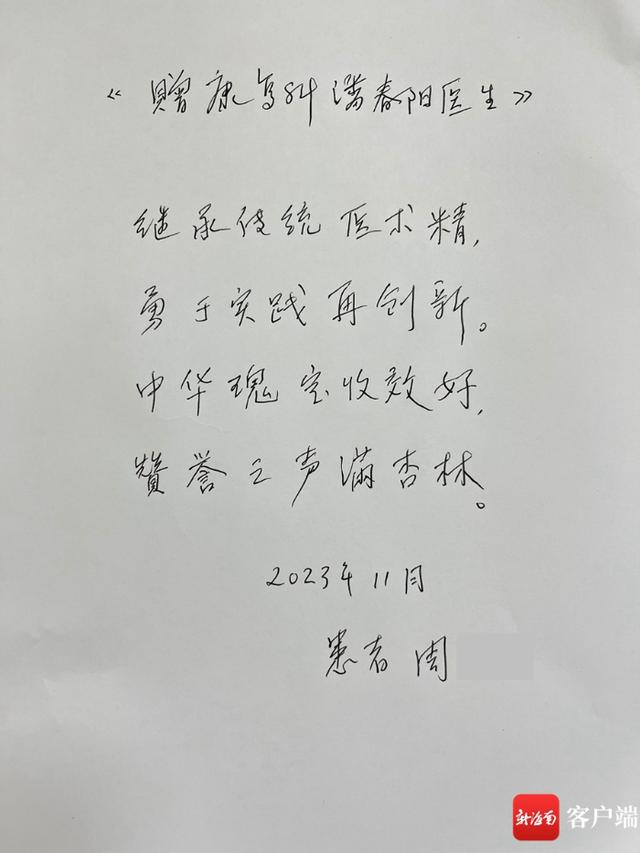 《赠康复科潘春阳医生》
继承传统医术精,
勇于实践再创新。
中华瑰宝收效好,
赞誉之声满杏林。
2023年11月
患者 周
新海南 客户端